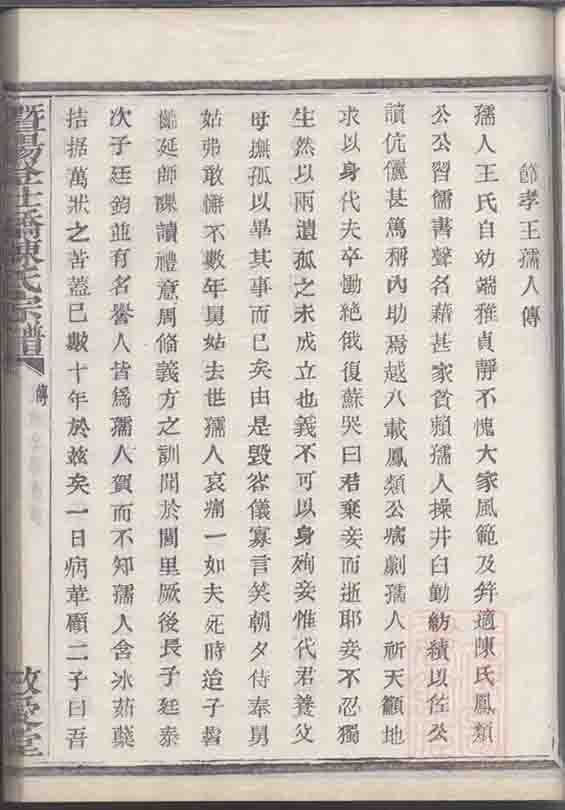 節孝王孺人傳
孺人王氏自幼端雅貞靜不愧大家風範及笄適陳氏鳳類
公公習儒書聲名藉甚家貧賴孺人操井臼勤紡績以佐公
讀伉儷甚篤稱內助焉越八載鳳類公病劇孺人祈天籲地
求以身代夫卒慟絶俄復蘇哭曰君棄妾而逝耶妾不忍獨
生然以兩遺孤之未成立也義不可以身殉妾惟代君養父
母撫孤以畢其事而已矣由是毀容儀寡言笑朝夕侍奉舅
姑弗敢懈不數年舅姑去世孺人哀痛一如夫死時迨子皆
能延師課讀禮意周備義方之訓聞於閭里厥後長子廷泰
次子廷鈞並有名譽人皆爲孺人賀而不知孺人含冰茹蘗
拮据萬狀之苦蓋已數十年於茲矣一日病革顧二子曰吾
暨陽 橋陳氏宗譜
傳
敬 堂